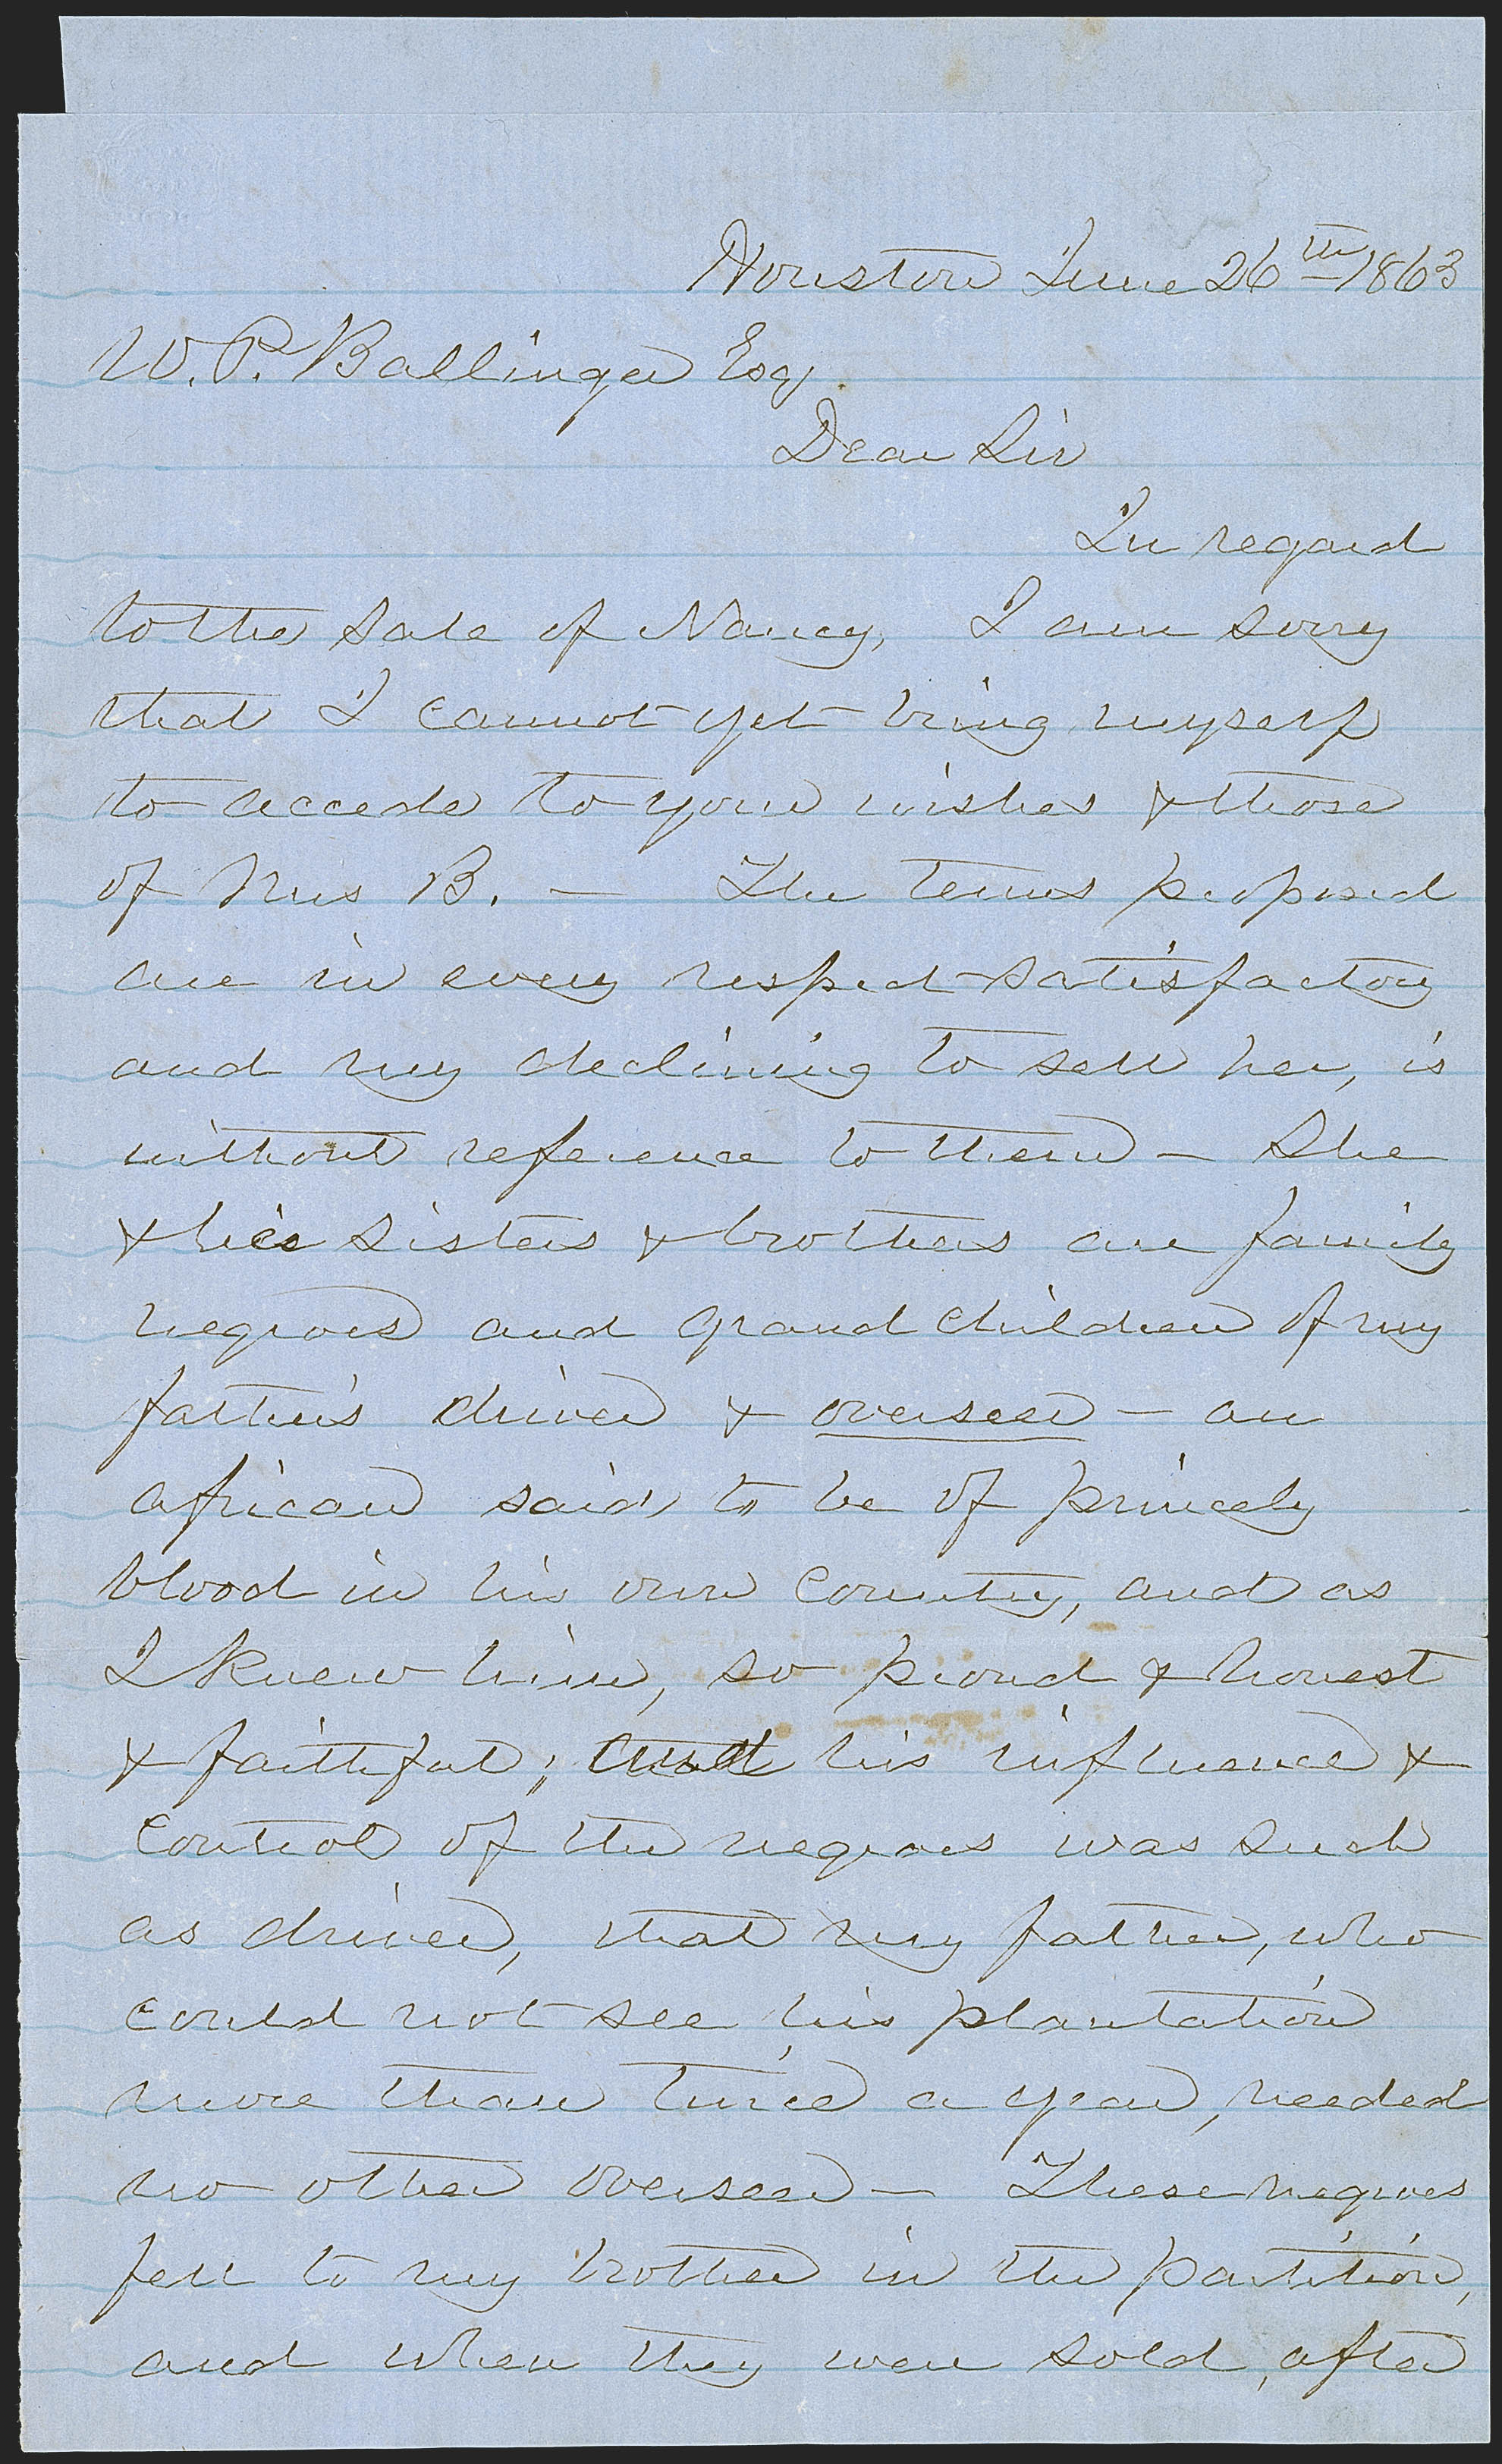 Houston June 26th 1863
W. P. Ballinger Esq.
Dear Sir
In regard
to the sale of Nancy, I am sorry
that I cannot yet bring myself
to accede to your wishes & those
of Mrs B. — The terms proposed
are in every respect satisfactory
and my declining to sell her, is
without reference to them — She
& her sisters & brothers are family
negroes and grand children of my
father's driver & overseer — an
african said to be of princely
blood in his own country, and as
I knew him, so proud & honest
& faithful; and his influence &
control of the negroes was such
as driver, that my father, who
could not see his plantation
more than twice a year, needed
no other overseer — These negroes
fell to my brother in the partition,
and when they were sold, after